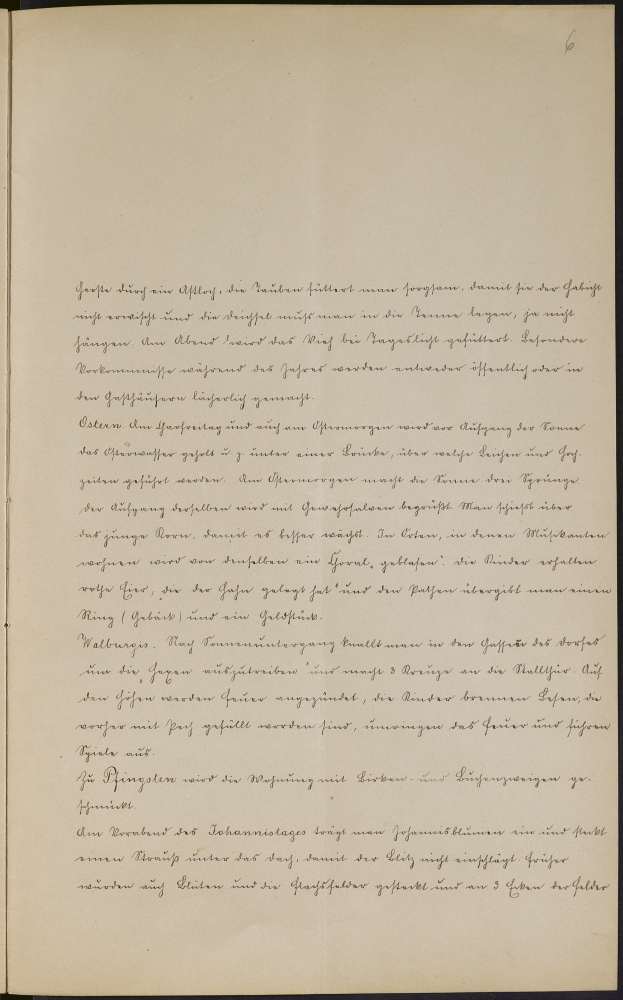 6
Gerste durch ein Astloch, die Tauben füttert man sorgsam, damit sie der Habicht
nicht erwischt und die Deichsel muß man in die Tenne legen, ja nicht
hängen. Am Abend wird das Vieh bei Tageslicht gefüttert. Besondere
Vorkommnisse während des Jahres werden entweder öffentlich oder in
den Gasthäusern lächerlich gemacht.
Ostern. Am Charfreitag und auch am Ostermorgen wird vor Aufgang der Sonne
das Osterwasser geholt u z unter einer Brücke, über welche Leichen und Hoch-
zeiten geführt werden. Am Ostermorgen macht die Sonne drei Sprünge
der Aufgang derselben wird mit Gewehrsalven begrüßt. Man schießt über
das junge Korn, damit es besser wächst. In Orten, in denen Musikanten
wohnen wird von denselben ein Choral „geblasen". Die Kinder erhalten
rothe Eier, „die der Hahn gelegt hat" und den Pathen übergibt man einen
Ring (Gebäck) und ein Geldstück.
Walburgis. Nach Sonnenuntergang knallt man in den Gassen des Dorfes
um die „Hexen auszutreiben" und macht 3 Kreuze an die Stallthür. Auf
den Höhen werden Feuer angezündet, die Kinder brennen Besen, die
vorher mit Pech gefüllt worden sind, umringen das Feuer und führen
Spiele aus.
Zu Pfingsten wird die Wohnung mit Birken- und Buchenzweigen ge-
schmückt.
Am Vorabend des Johannistages trägt man Johannisblumen ein und steckt
einen Strauß unter das Dach, damit der Blitz nicht einschlägt. Früher
wurden auch Blüten und die Flachsfelder gesteckt und an 3 Ecken der Felder